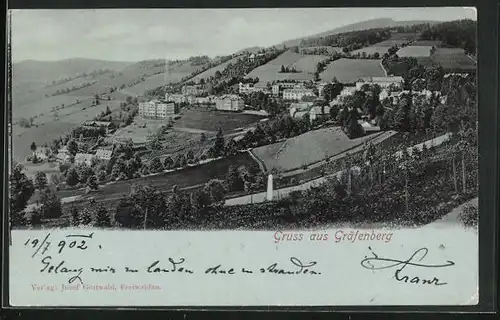 Gruss aus Gräfenberg
19/7 902
Gelang mir zu landen ohne zu stranden
Franz
Verlag: Josef Gottwald, Freiwaldau.